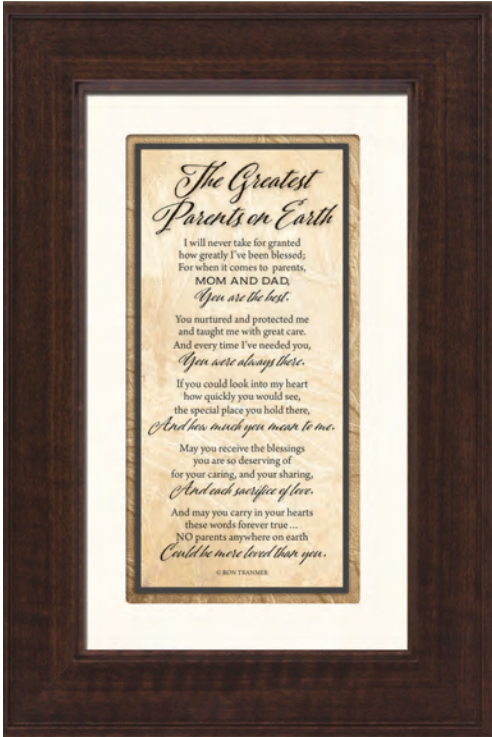 The Greatest
Parents on Earth
I will never take for granted
how greatly I've been blessed;
For when it comes to parents,
MOM AND DAD,
You are the best.
You nurtured and protected me
and taught me with great care.
And every time I've needed you,
You were always there.
If you could look into my heart
how quickly you would see,
the special place you hold there,
And how much you mean to me.
May you receive the blessings
you are so deserving of
for your caring, and your sharing,
And each sacrifice of love.
And may you carry in your hearts
these words forever true...
NO parents anywhere on earth
Could be more loved than you.
© RON TRANMER